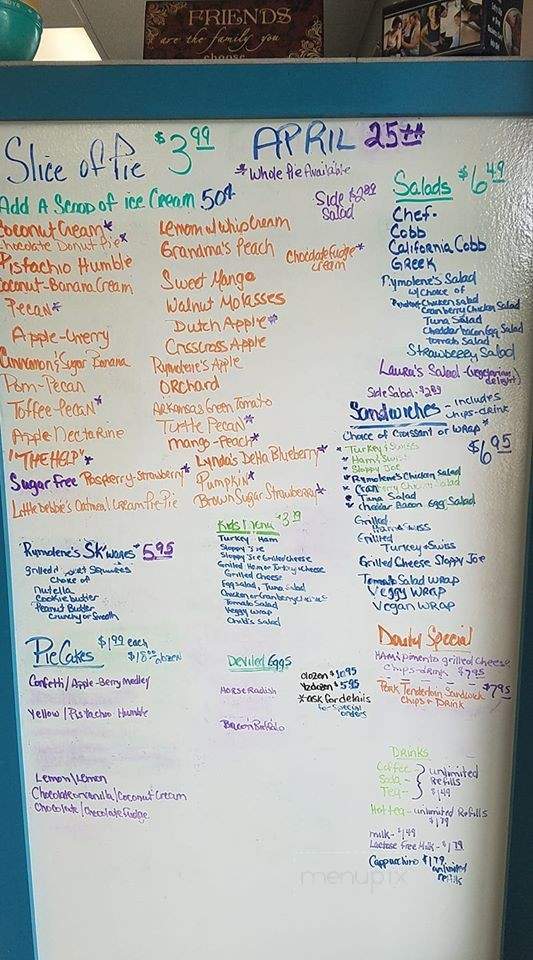 FRIENDS
are the family you
choose
Slice of Pie $3.99
APRIL 25th
*Whole Pie Available
Add A Scoop of ice Cream 50¢
Side Salad $2.89
Coconut Cream*
Chocolate Donut Pie*
Pistachio Humble
Coconut-Banana Cream
Pecan*
Apple-Cherry
Cinnamon & Sugar Banana
Pom-Pecan
Toffee-Pecan*
Apple Nectarine
"THE HELP"*
Sugar Free *Raspberry-Strawberry*
Little Debbie's Oatmeal Cream Pie-Pie
Lemon w/Whip Cream
Grandma's Peach
Chocolate Fudge Cream*
Sweet Mango
Walnut Molasses
Dutch Apple*
Crisscross Apple
Rymolene's Apple
ORCHARD
Arkansas Green Tomato
Turtle Pecan*
Mango-Peach*
Lynda's Delta Blueberry*
Pumpkin*
Brown Sugar Strawberry*
Salads $6.49
Chef-
Cobb
California Cobb
Greek
Rymolene's Salad
w/choice of
Chicken Salad
Cranberry Chicken Salad
Tuna Salad
Cheddar bacon Egg Salad
tomato Salad
Strawberry Salad
Laura's Salad - (vegetarian delight)
Side Salad - $2.89
Sandwiches - includes
chips-drink
Choice of Croissant or Wrap*
$6.95
* Turkey & Swiss
* Ham & Swiss
* Sloppy Joe
* Rymolene's Chicken Salad
* Cranberry Chicken Salad
* Tuna Salad
* Cheddar Bacon Egg Salad
Grilled
Ham & Swiss
Grilled
Turkey & Swiss
Grilled Cheese Sloppy Joe
Tomato Salad Wrap
Veggy Wrap
Vegan Wrap
Rymolene's SK'wares $5.95
Choice of
Nutella
Cookie butter
Peanut Butter
Crunchy or Smooth
Kids Menu $3.19
Turkey Ham
Sloppy Joe
Sloppy Joe Grilled Cheese
Grilled Ham or Turkey & Cheese
Grilled Cheese
Egg Salad, Tuna Salad
Tomato Salad
Veggy Wrap
Child's Salad
Pie Cakes $1.99 each
dozen
Confetti/Apple-Berry Medley
Yellow/Pistachio Humble
Lemon/Lemon
Chocolate or Vanilla/Coconut Cream
Chocolate/Chocolate Fudge
Deviled Eggs
dozen $10.95
½ dozen $5.95
* ask for details
for special
orders
Horse Radish
Bacon Buffalo
Special
Ham & pimento grilled cheese
chips-drink $7.95
Pork Tenderloin Sandwich $7.95
Chips & Drink
DRINKS
Coffee
Soda
Tea
unlimited Refills
$1.49
Hot tea - unlimited Refills
$1.79
milk - $1.49
Lactose Free Milk - $1.79
Cappuccino $1.79
unlimited refills
menupix